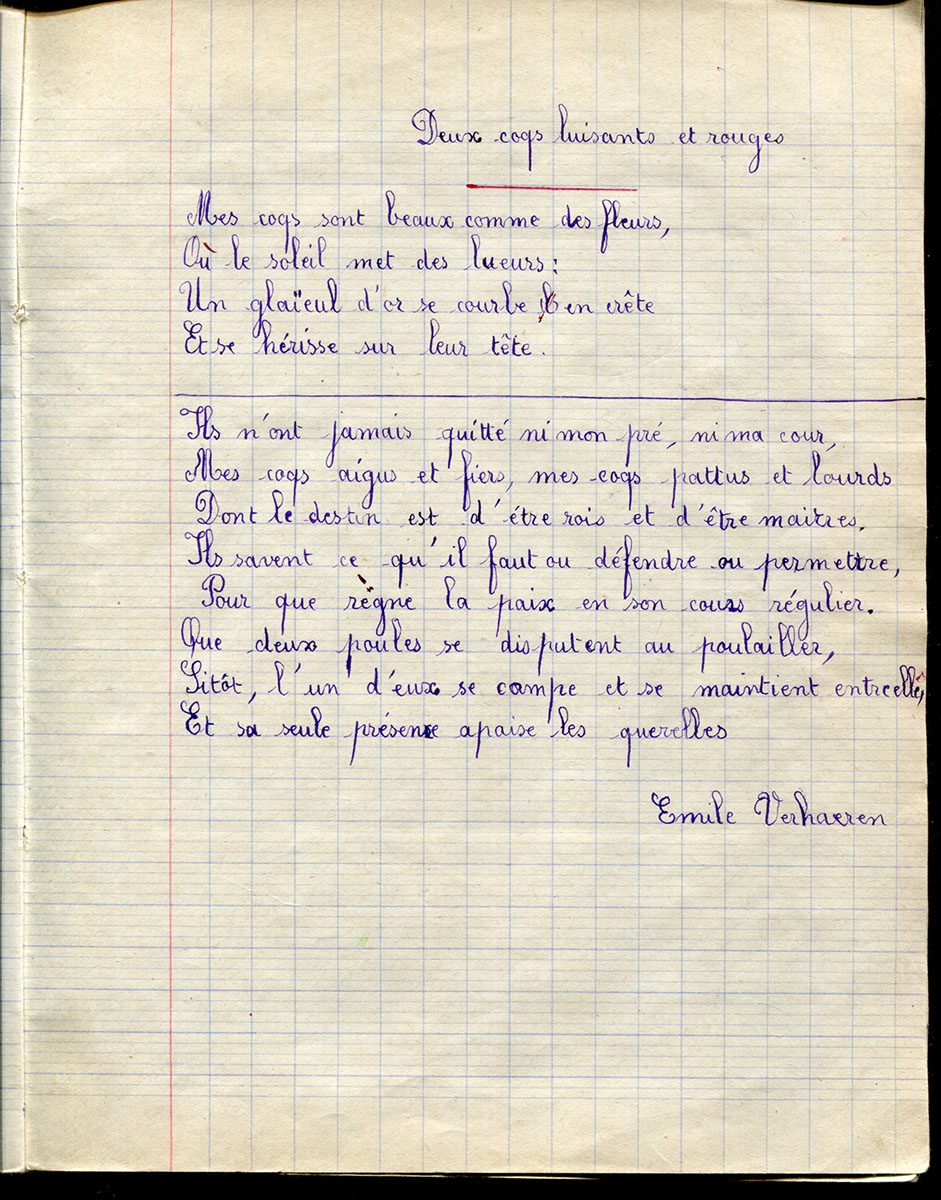 Deux coqs luisants et rouges
Mes coqs sont beaux comme des fleurs,
Où le soleil met des lueurs:
Un glaïeul d'or se courbe en crête
Et se hérisse sur leur tête.
Ils n'ont jamais quitté ni mon pré, ni ma cour,
Mes coqs aigus et fiers, mes coqs pattus et lourds
Dont le destin est d'être rois et d'être maitres.
Ils savent ce qu'il faut ou défendre ou permettre,
Pour que règne la paix en son cours régulier.
Que deux poules se disputent au poulailler,
Sitôt, l'un d'eux se campe et se maintient entre elles,
Et sa seule présence apaise les querelles
Emile Verhaeren